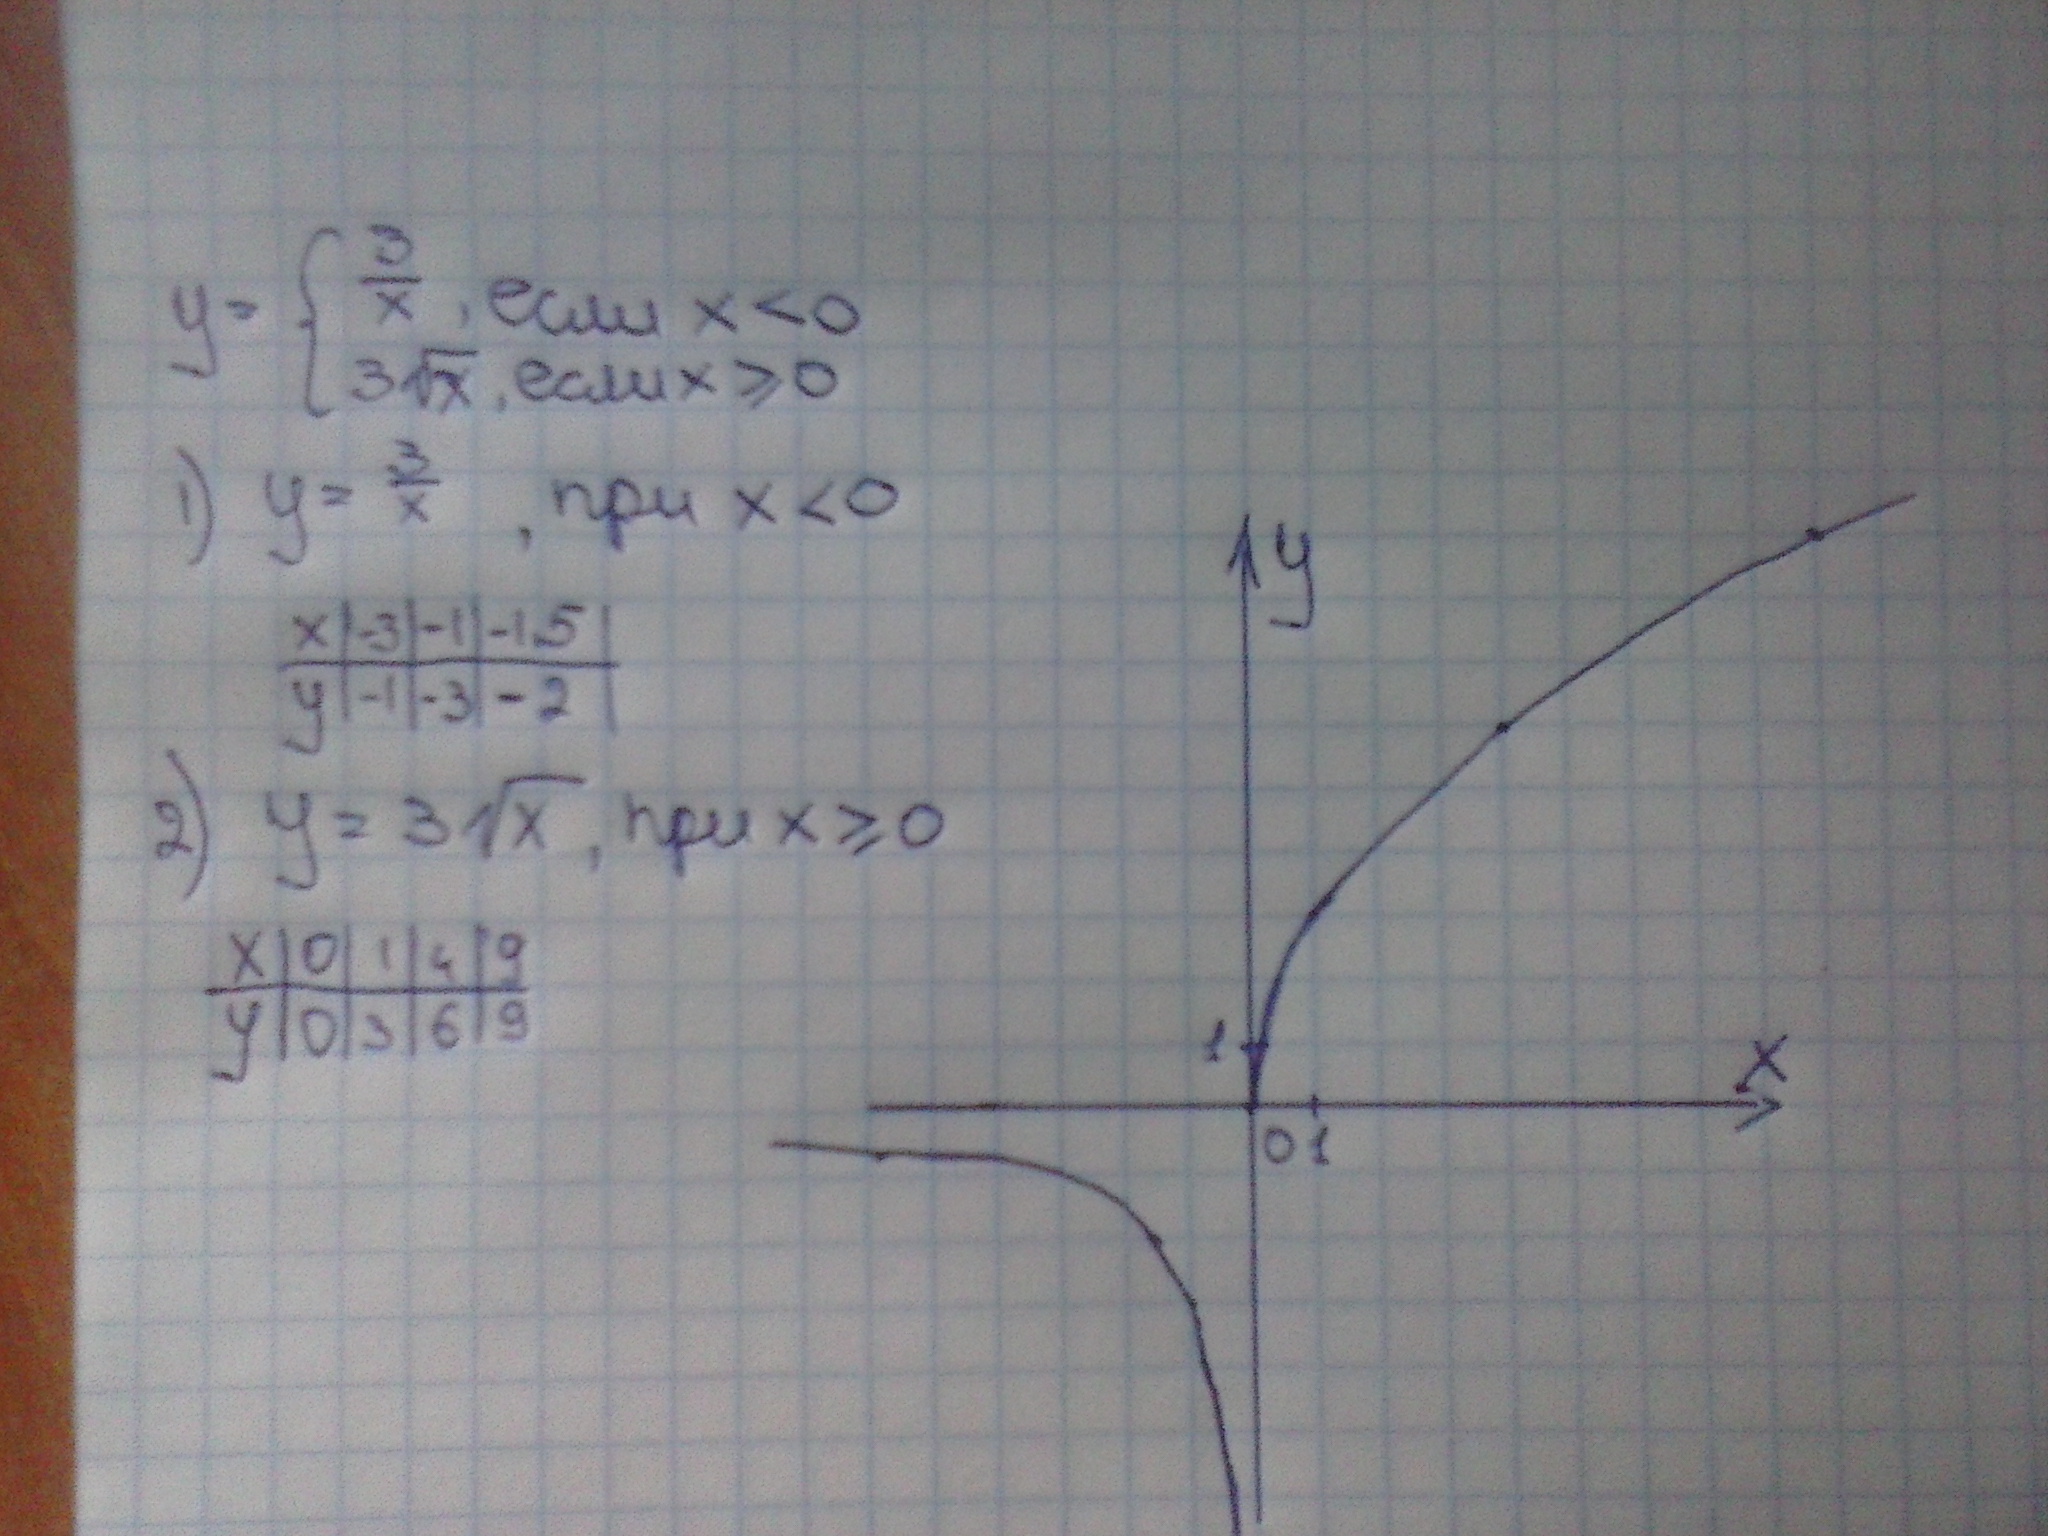 y = { 3/x, если x < 0
3√x, если x ≥ 0
1) y = 3/x, при x < 0
x | -3 | -1 | -1,5 |
y | -1 | -3 | -2 |
2) y = 3√x, при x ≥ 0
x | 0 | 1 | 4 | 9
y | 0 | 3 | 6 | 9
y
1
x
0 1